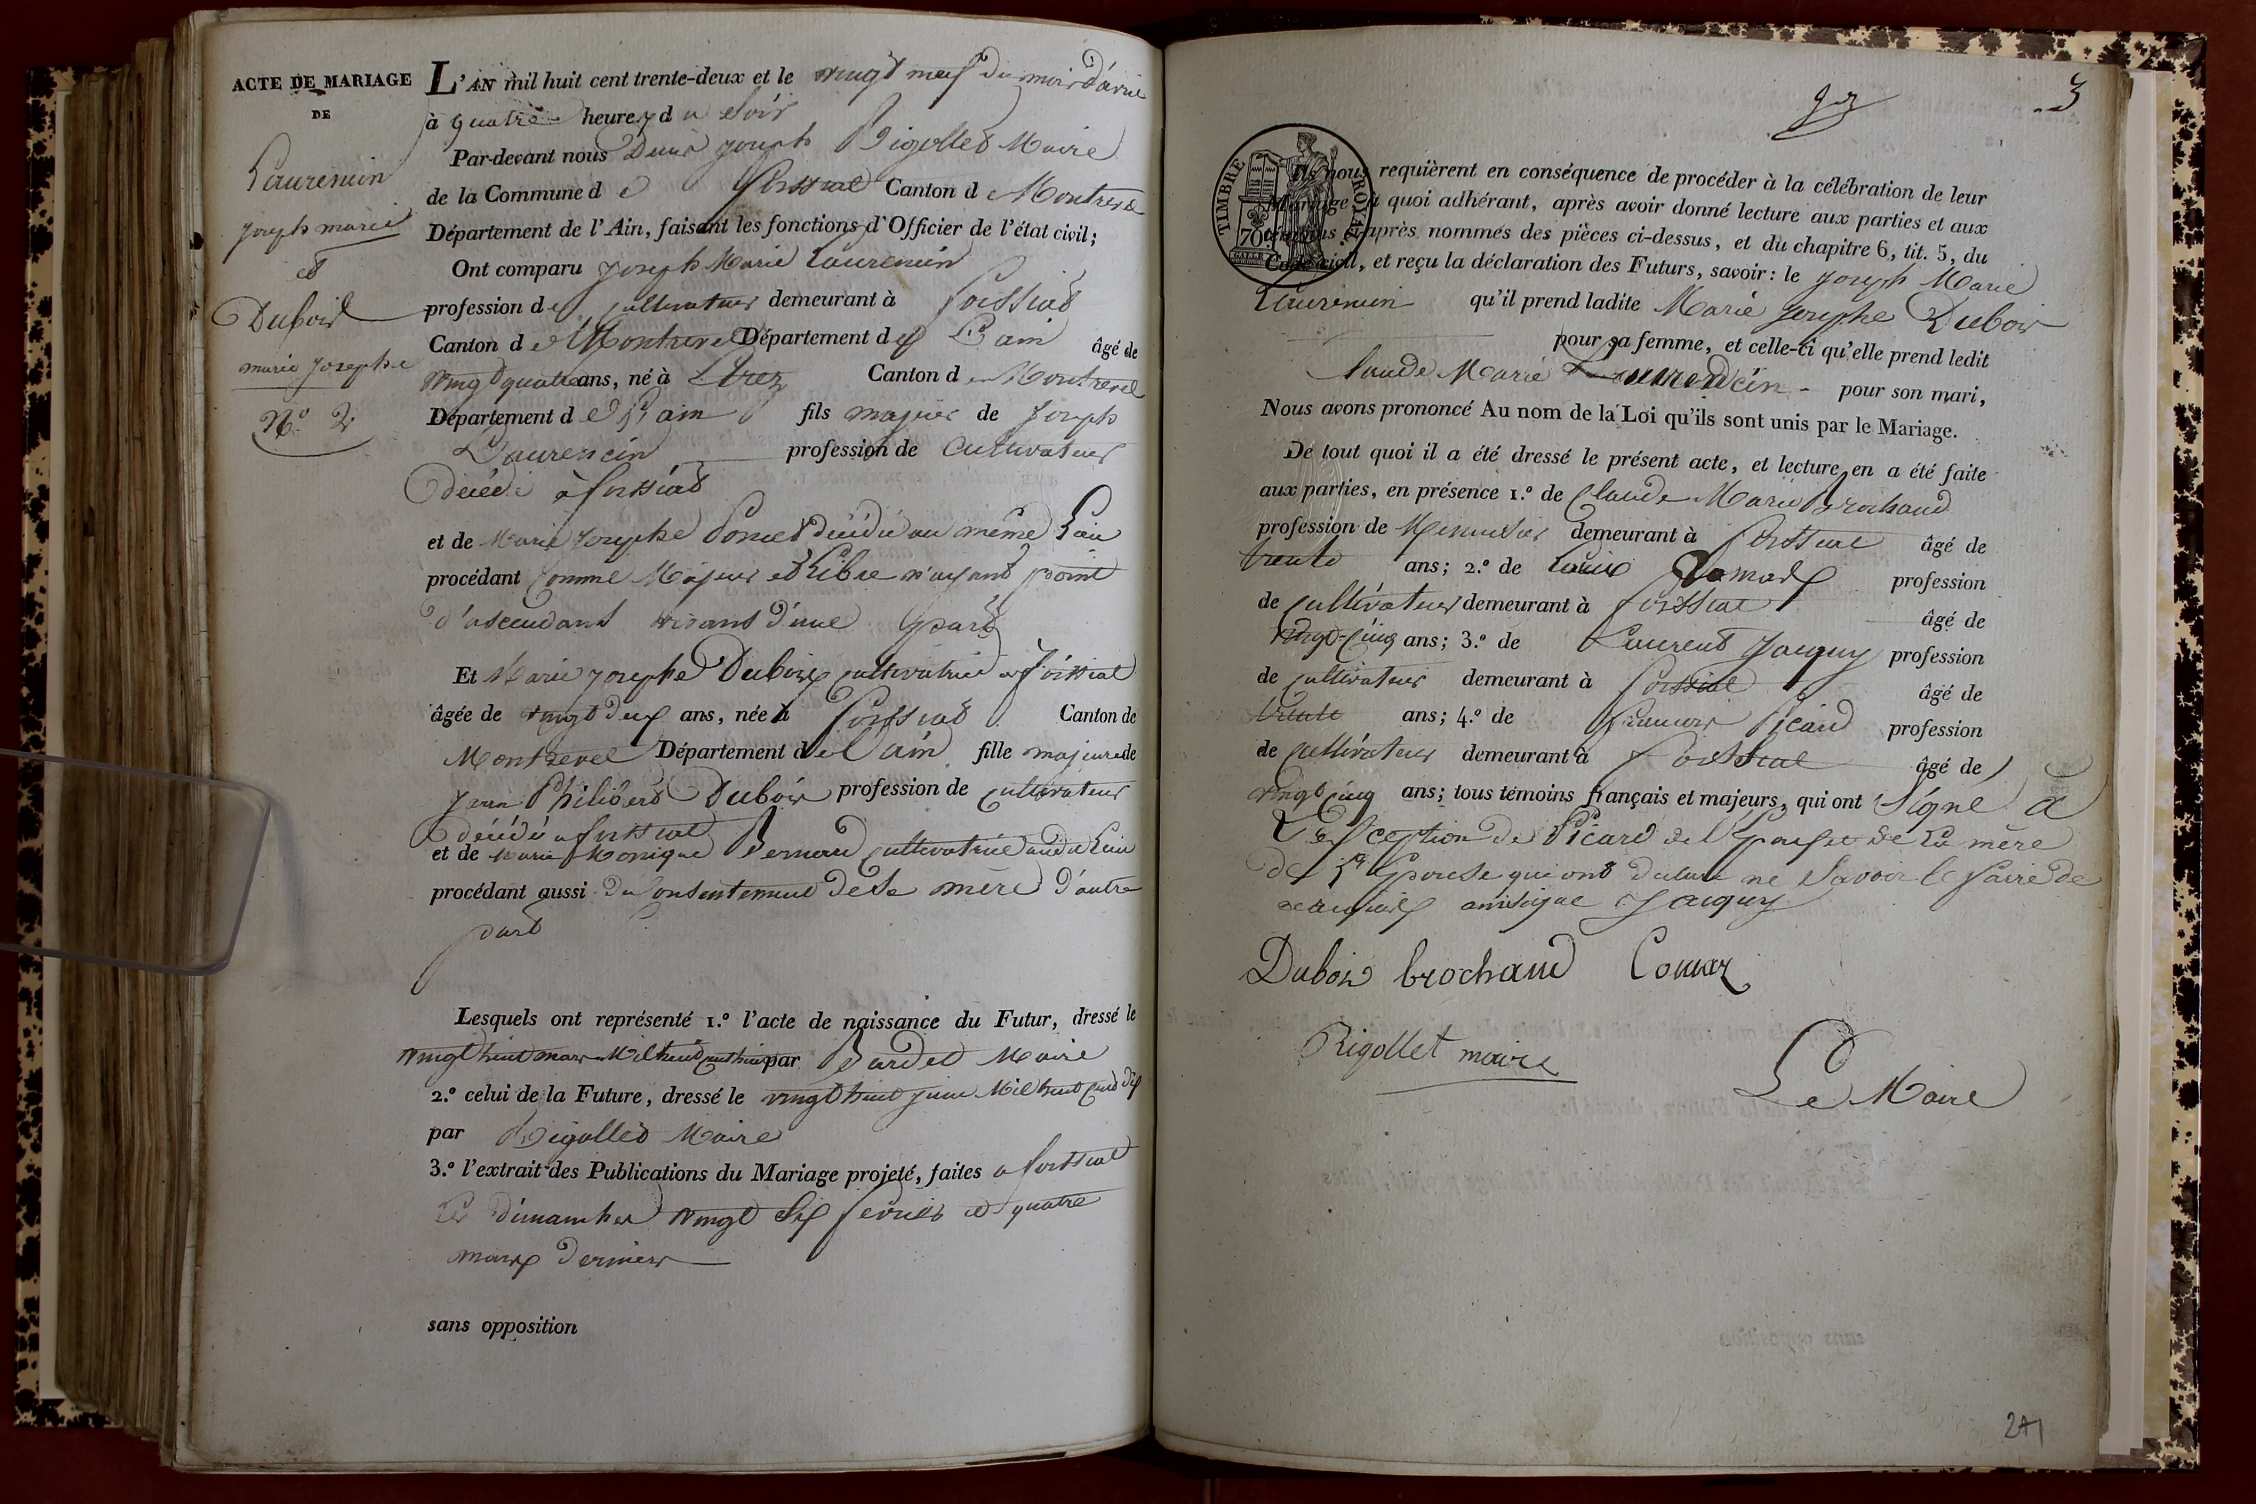 ACTE DE MARIAGE
DE
Laurencin
joseph marie
et
Dubois
marie josephe
N.º 2
L'AN mil huit cent trente-deux et le vingt neuf du mois d'avril
à quatre heures du Soir
Par-devant nous Denis joseph Rigollet Maire
de la Commune de foissiat Canton de Montrevel
Département de l'Ain, faisant les fonctions d'Officier de l'état civil;
Ont comparu joseph Marie Laurencin
profession de cultivateur demeurant à foissiat
Canton de Montrevel Département de L'ain âgé de
vingt quatre ans, né à Etrez Canton de Montrevel
Département de l'ain fils majeur de joseph
Laurencin profession de Cultivateur
décédé à foissiat
et de Marie josephe Poncet décédée au même Lieu
procédant Comme Majeur et Libre n'ayant point
d'ascendant vivans d'une part
Et Marie josephe Dubois cultivatrice a foissiat
âgée de vingt deux ans, née à foissiat Canton de
Montrevel Département de l'ain fille majeure de
jean Philibert Dubois profession de cultivateur
décédé a foissiat
et de Marie Monique Bernard cultivatrice audit Lieu
procédant aussi du Consentement de Sa mère d'autre
part
Lesquels ont représenté 1.º l'acte de naissance du Futur, dressé le
vingt huit mars Mil huit cent huit par Bardet Maire
2.º celui de la Future, dressé le vingt huit juin Mil huit cent dix
par Rigollet Maire
3.º l'extrait des Publications du Mariage projeté, faites a foissiat
les dimanches vingt Six fevrier et quatre
mars derniers
sans opposition
3
TIMBRE ROYAL
70
Ils nous requièrent en conséquence de procéder à la célébration de leur
Mariage à quoi adhérant, après avoir donné lecture aux parties et aux
témoins ci-après nommés des pièces ci-dessus, et du chapitre 6, tit. 5, du
Code civil, et reçu la déclaration des Futurs, savoir: le joseph Marie
Laurencin qu'il prend ladite Marie josephe Dubois
pour sa femme, et celle-ci qu'elle prend ledit
Claude Marie Laurencin pour son mari,
Nous avons prononcé Au nom de la Loi qu'ils sont unis par le Mariage.
De tout quoi il a été dressé le présent acte, et lecture en a été faite
aux parties, en présence 1.º de Claude Marie Brochaud
profession de Menuisier demeurant à foissiat âgé de
trente ans; 2.º de Louis profession
de cultivateur demeurant à foissiat âgé de
vingt-cinq ans; 3.º de Laurent profession
de cultivateur demeurant à foissiat âgé de
trente ans; 4.º de francois Picard profession
de cultivateur demeurant à foissiat âgé de
vingt cinq ans; tous témoins français et majeurs, qui ont Signé a
L'exception de Picard de l'Epouse et de La mère
de l'Epouse qui ont déclaré ne Savoir le faire de
Dubois brochaud
Rigollet maire
Le Maire
241